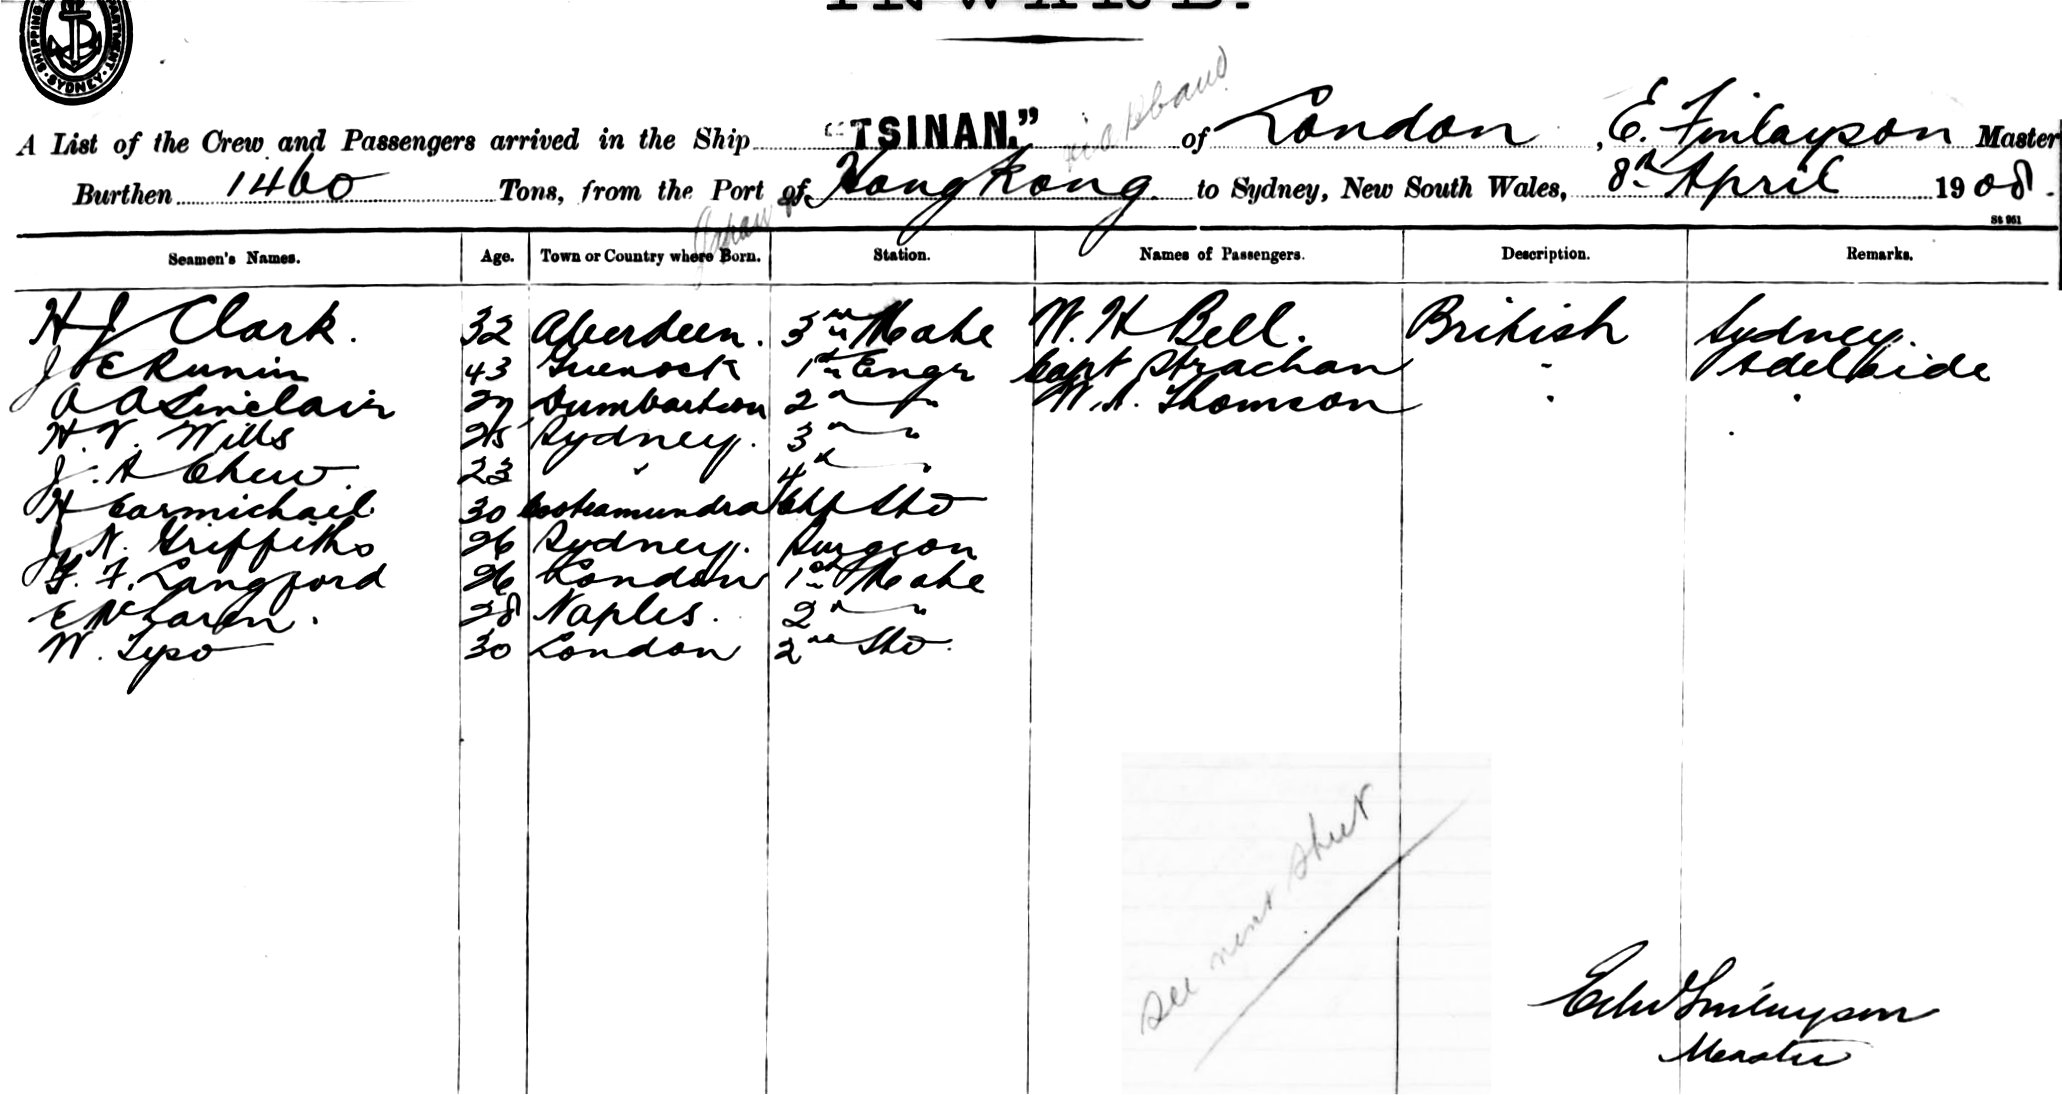 SHIPPING DEPARTMENT SYDNEY
INWARD.
A List of the Crew and Passengers arrived in the Ship "TSINAN." of London, E. Finlayson Master
Burthen 1460 Tons, from the Port of Hong Kong to Sydney, New South Wales, 8th April 1908.
St 961
Seamen's Names. Age. Town or Country where Born. Station. Names of Passengers. Description. Remarks.
H J Clark. 32 Aberdeen. 3rd Mate W. H Bell. British Sydney.
J E Runin 43 Greenock 1st Engr Capt Strachan " Adelaide
A A Sinclair Dumbarton 2 " W. A. Thomson " "
H. V. Wills 25 Sydney. 3 " "
J. A Chew. 23 " 4th "
H Carmichail 30 Cootamundra Chf Std
J. N. Griffiths 26 Sydney. Surgeon
F. F. Langford 26 London 1st Mate
E McLaren. 28 Naples. 2 " "
W. Tyso 30 London 2nd Std.
See next sheet
Edw Finlayson
Master